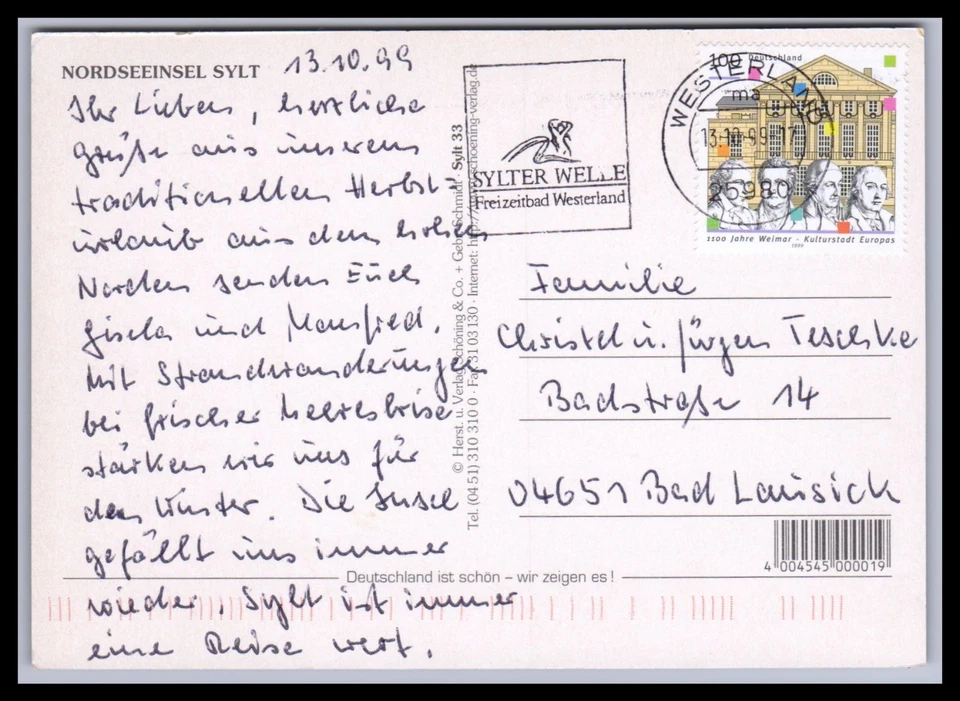 NORDSEEINSEL SYLT
13.10.99
Ihr Lieben, herzliche
Grüße aus unserem
traditionellen Herbst-
urlaub aus dem hohen
Norden senden Euch
Gisela und Manfred.
Mit Strandwanderungen
bei frischer Meeresbrise
stärken wir uns für
den Winter. Die Insel
gefällt uns immer
wieder. Sylt ist immer
eine Reise wert.
© Herst. u. Verlag Schöning & Co. + Gebr. Schmidt · Sylt 33
Tel. (04 51) 310 310 0 · Fax 31 03 130 · Internet: http://www.schoening-verlag.de
SYLTER WELLE
Freizeitbad Westerland
100 Deutschland
WESTERLAND
ma
13.10.99-17
25980
1100 Jahre Weimar - Kulturstadt Europas
1999
Familie
Christel u. Jürgen Teschke
Badstraße 14
04651 Bad Lausick
4 004545 000019
Deutschland ist schön – wir zeigen es!